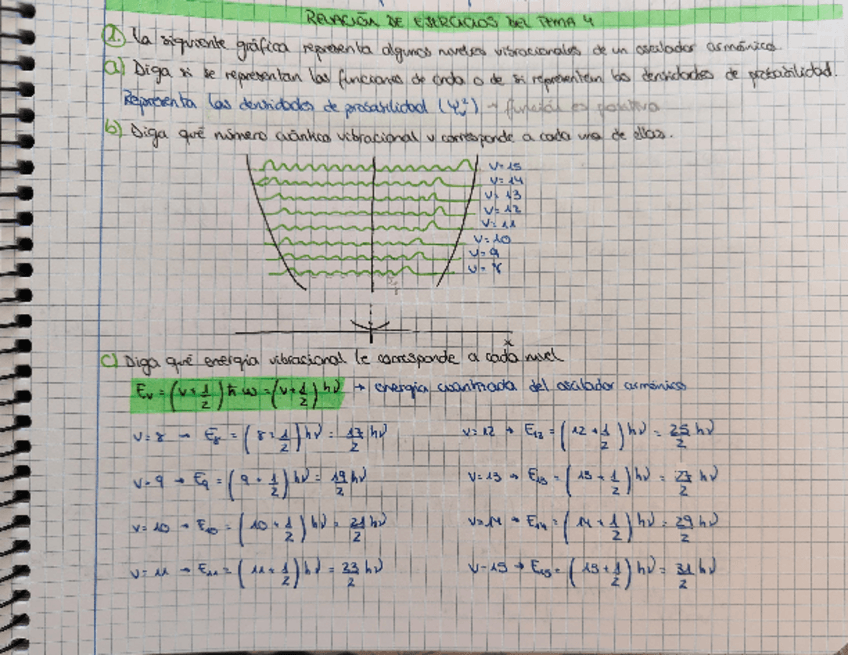 RELACIÓN DE EJERCICIOS DEL TEMA 4
La siguiente gráfica representa algunos niveles vibracionales de un oscilador armónico.
a) Diga si se representan las funciones de onda o de si representan las densidades de probabilidad.
Representa las densidades de probabilidad (Ψv²) → función es positiva
b) Diga qué número cuántico vibracional v corresponde a cada una de ellas.
v=15
v=14
v=13
v=12
v=11
v=10
v=9
v=8
x
c) Diga qué energía vibracional le corresponde a cada nivel
Ev = (v+1/2) ħω = (v+1/2) hν → energía cuantizada del oscilador armónico
v=8 → E8 = (8+1/2) hν = 17/2 hν
v=12 → E12 = (12+1/2) hν = 25/2 hν
v=9 → E9 = (9+1/2) hν = 19/2 hν
v=13 → E13 = (13+1/2) hν = 27/2 hν
v=10 → E10 = (10+1/2) hν = 21/2 hν
v=14 → E14 = (14+1/2) hν = 29/2 hν
v=11 → E11 = (11+1/2) hν = 23/2 hν
v=15 → E15 = (15+1/2) hν = 31/2 hν